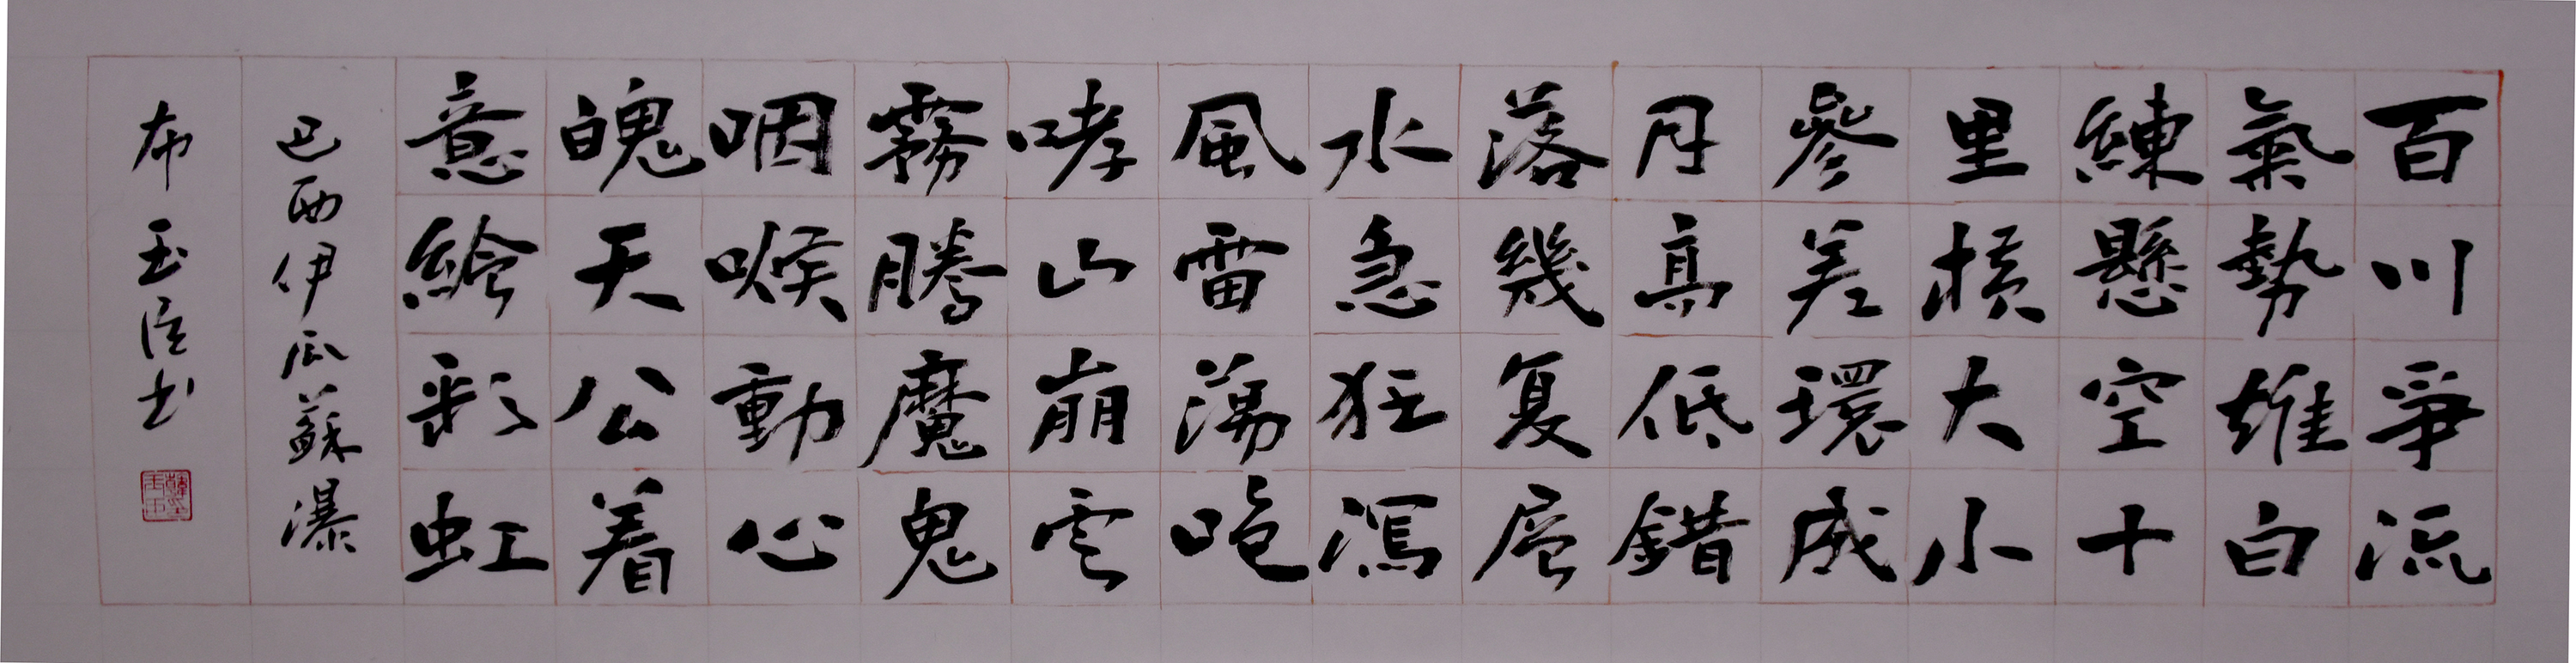 百川爭流
氣勢雄白
練懸空十
里横大小
參差環成
月高低錯
落幾复层
水急狂瀉
風雷蕩咆
哮山崩雲
霧騰魔鬼
咽喉動心
魄天公着
意繪彩虹
巴西伊瓜蘇瀑
布 玉臣书